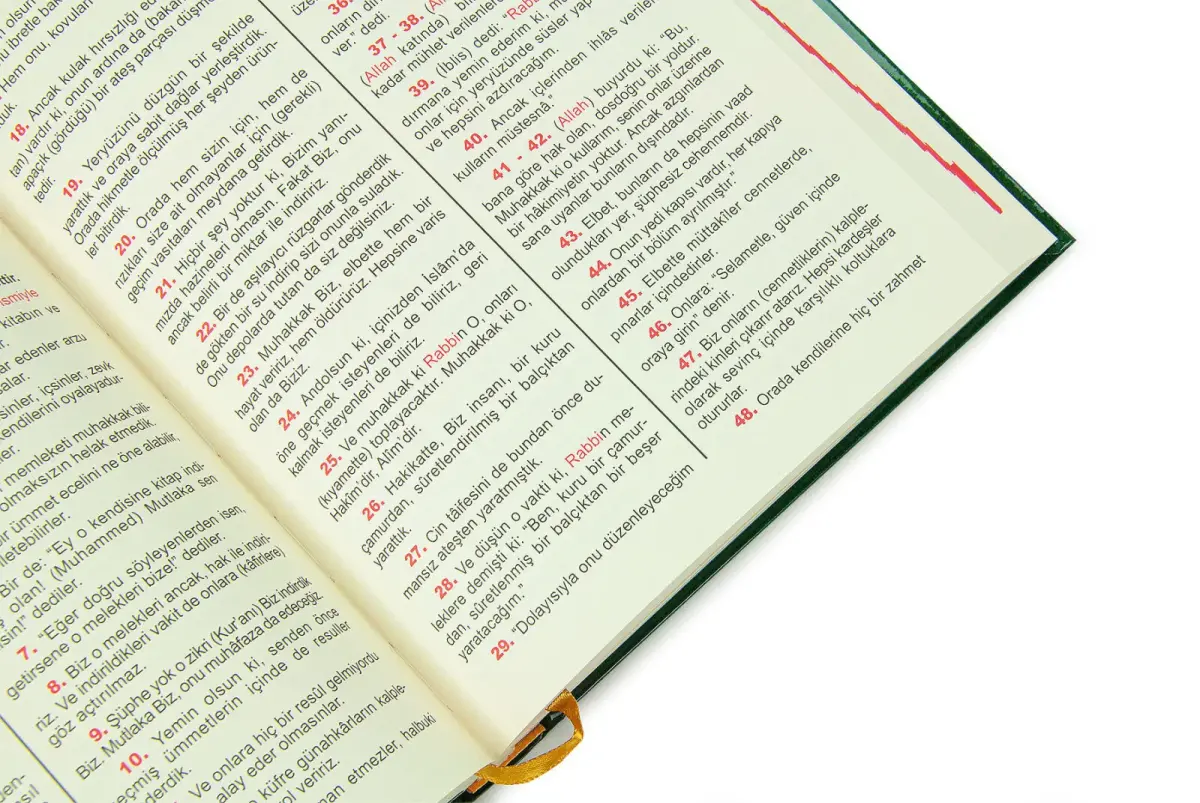 ittir.
ismiyle
kitabın ve
edenler arzu
içsinler, zevk
kendilerini oyalayadur-
memleketi muhakkak bili-
olmaksızın helak etmedik.
bir ümmet ecelini ne öne alabilir,
Bir de: “Ey o kendisine kitap indi-
olan! (Muhammed) Mutlaka sen
dediler.
7. “Eğer doğru söyleyenlerden isen,
getirsene o melekleri bize!” dediler.
8. Biz o melekleri ancak, hak ile indiri-
riz. Ve indirildikleri vakit de onlara (kâfirlere)
göz açtırılmaz.
9. Şüphe yok o zikri (Kur'anı) Biz indirdik
Biz. Mutlaka Biz, onu muhâfaza da edeceğiz
10. Yemin olsun ki, senden önce
geçmiş ümmetlerin içinde de resuller
Ve onlara hiç bir resûl gelmiyordu
alay eder olmasınlar.
o küfre günahkârların kalple-
yol veririz.
iman etmezler, halbuki
18. Ancak kulak hırsızlığı eden
tan) vardır ki, onun ardına da (bakan
apaçık (gördüğü) bir ateş parçası düşmek-
tedir.
19. Yeryüzünü düzgün bir şekilde
yarattık ve oraya sabit dağlar yerleştirdik.
Orada hikmetle ölçülmüş her şeyden ürün-
ler bitirdik.
20. Orada hem sizin için, hem de
rızıkları size ait olmayanlar için (gerekli)
geçim vasıtaları meydana getirdik.
21. Hiçbir şey yoktur ki, Bizim yanı-
mızda hazineleri olmasın. Fakat Biz, onu
ancak belirli bir miktar ile indiririz.
22. Bir de aşılayıcı rüzgarlar gönderdik
de gökten bir su indirip sizi onunla suladık.
Onu depolarda tutan da siz değilsiniz.
23. Muhakkak Biz, elbette hem bir
hayat veririz, hem öldürürüz. Hepsine varis
olan da Biziz.
24. Andolsun ki, içinizden İslâm'da
öne geçmek isteyenleri de biliriz, geri
kalmak isteyenleri de biliriz.
25. Ve muhakkak ki Rabbin O, onları
(kıyamette) toplayacaktır. Muhakkak ki O,
Hakîm'dir, Alîm'dir.
26. Hakikatte, Biz insanı, bir kuru
çamurdan, sûretlendirilmiş bir balçıktan
yarattık.
27. Cin tâifesini de bundan önce du-
mansız ateşten yaratmıştık.
28. Ve düşün o vakti ki, Rabbin me-
leklere demişti ki: “Ben, kuru bir çamur-
dan, sûretlenmiş bir balçıktan bir beşer
yaratacağım.”
29. “Dolayısıyla onu düzenleyeceğim
36.
onların
ver.” dedi.
37 - 38. (Allah
(Allah katında)
kadar mühlet verilenlerden
39. (İblis) dedi: “Rabbi
dırmana yemin ederim ki, mu
onlar için yeryüzünde süsler yap
ve hepsini azdıracağım.
40. Ancak içlerinden ihlâs verilen
kulların müstesnâ.”
41 - 42. (Allah) buyurdu ki: “Bu,
bana göre hak olan, dosdoğru bir yoldur.
Muhakkak ki o kullarım, senin onlar üzerine
bir hâkimiyetin yoktur. Ancak azgınlardan
sana uyanlar bunların dışındadır.
43. Elbet, bunların da hepsinin vaad
olundukları yer, şüphesiz cehennemdir.
44. Onun yedi kapısı vardır, her kapıya
onlardan bir bölüm ayrılmıştır.”
45. Elbette müttakîler cennetlerde,
pınarlar içindedirler.
46. Onlara: “Selametle, güven içinde
oraya girin” denir.
47. Biz onların (cennetliklerin) kalple-
rindeki kinleri çıkarır atarız. Hepsi kardeşler
olarak sevinç içinde karşılıklı koltuklara
otururlar.
48. Orada kendilerine hiç bir zahmet